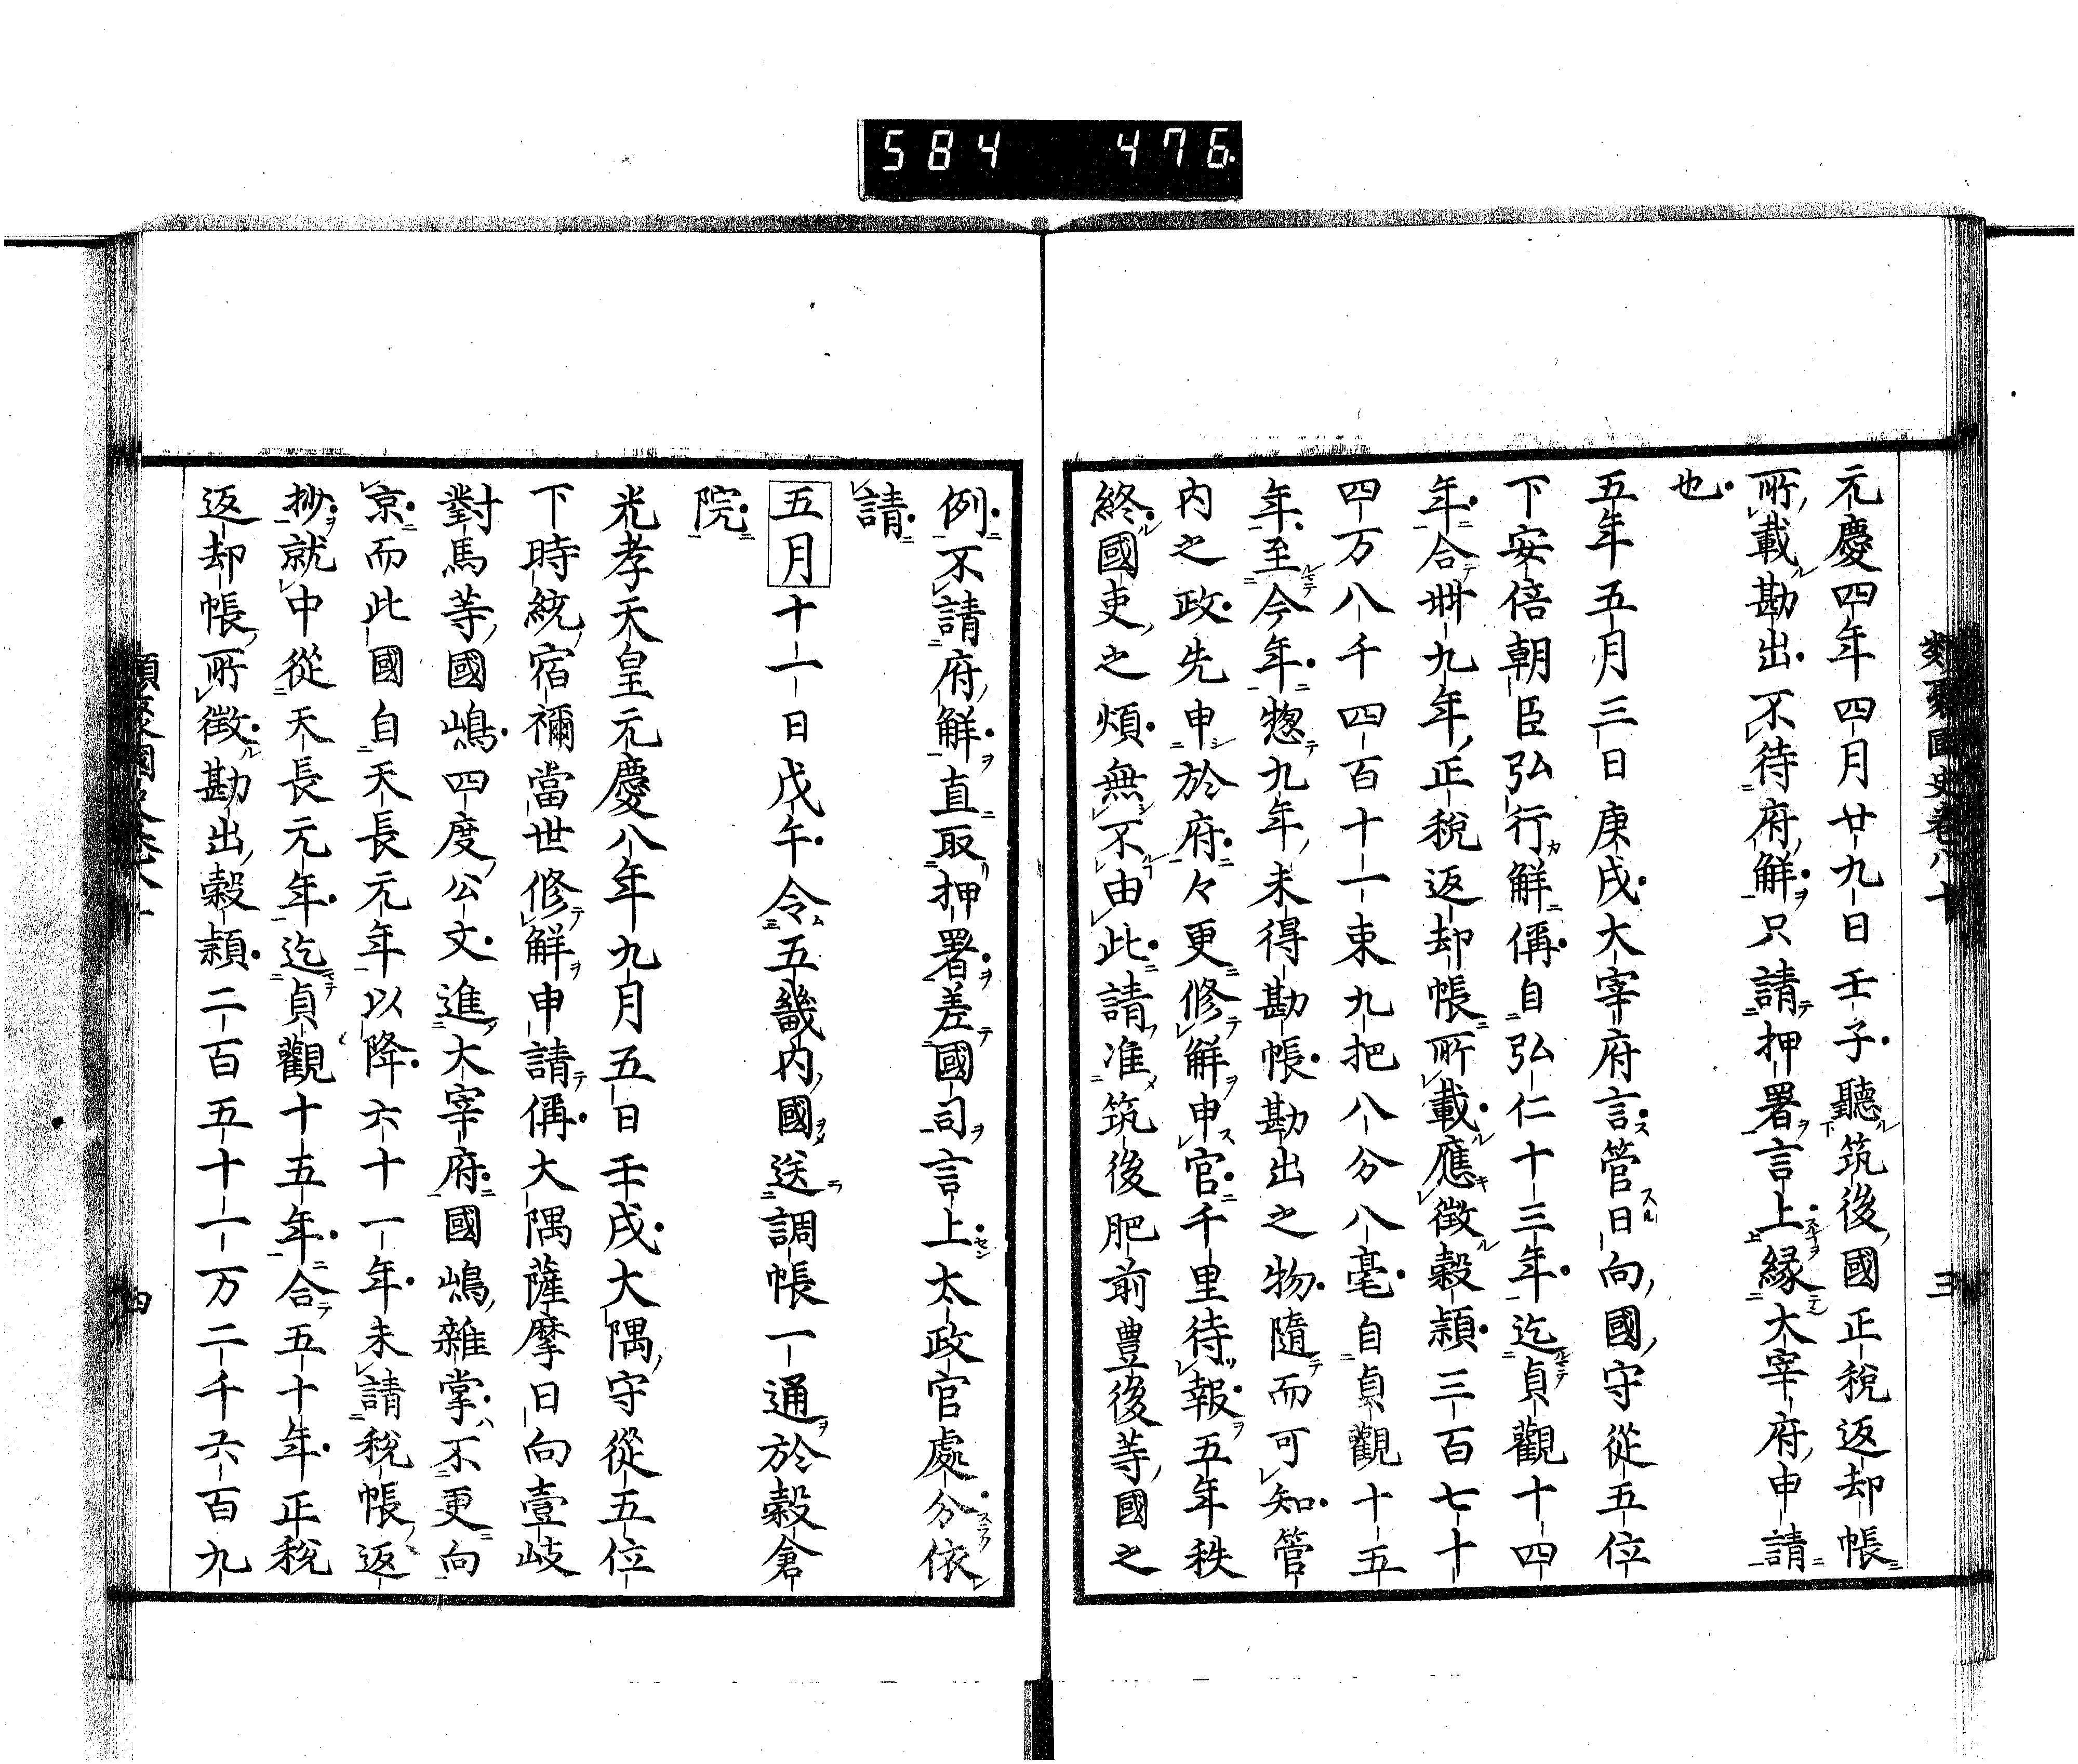 584 476
類聚國史卷八十 三
元慶四年四月廿九日壬子聽筑後國正税返却帳
所載勘出不待府解只請押署言上縁大宰府申請
也
五年五月三日庚戌大宰府言管日向國守從五位
下安倍朝臣弘行解偁自弘仁十三年迄貞觀十四
年合卌九年正税返却帳所載應徴穀穎三百七十
四万八千四百十一束九把八分八毫自貞觀十五
年至今年惣九年未得勘帳勘出之物隨而可知管
内之政先申於府々更修解申官千里待報五年秩
終國吏之煩無不由此請准筑後肥前豊後等國之
例不請府解直取押署差國司言上太政官處分依
請
五月十一日戊午令五畿内國送調帳一通於穀倉
院
光孝天皇元慶八年九月五日壬戌大隅守從五位
下時統宿禰當世修解申請偁大隅薩摩日向壹岐
對馬等國嶋四度公文進大宰府國嶋雜掌不更向
京而此國自天長元年以降六十一年未請税帳返
抄就中從天長元年迄貞觀十五年合五十年正税
返却帳所徴勘出穀穎二百五十一万二千六百九
類聚國史卷八十 四